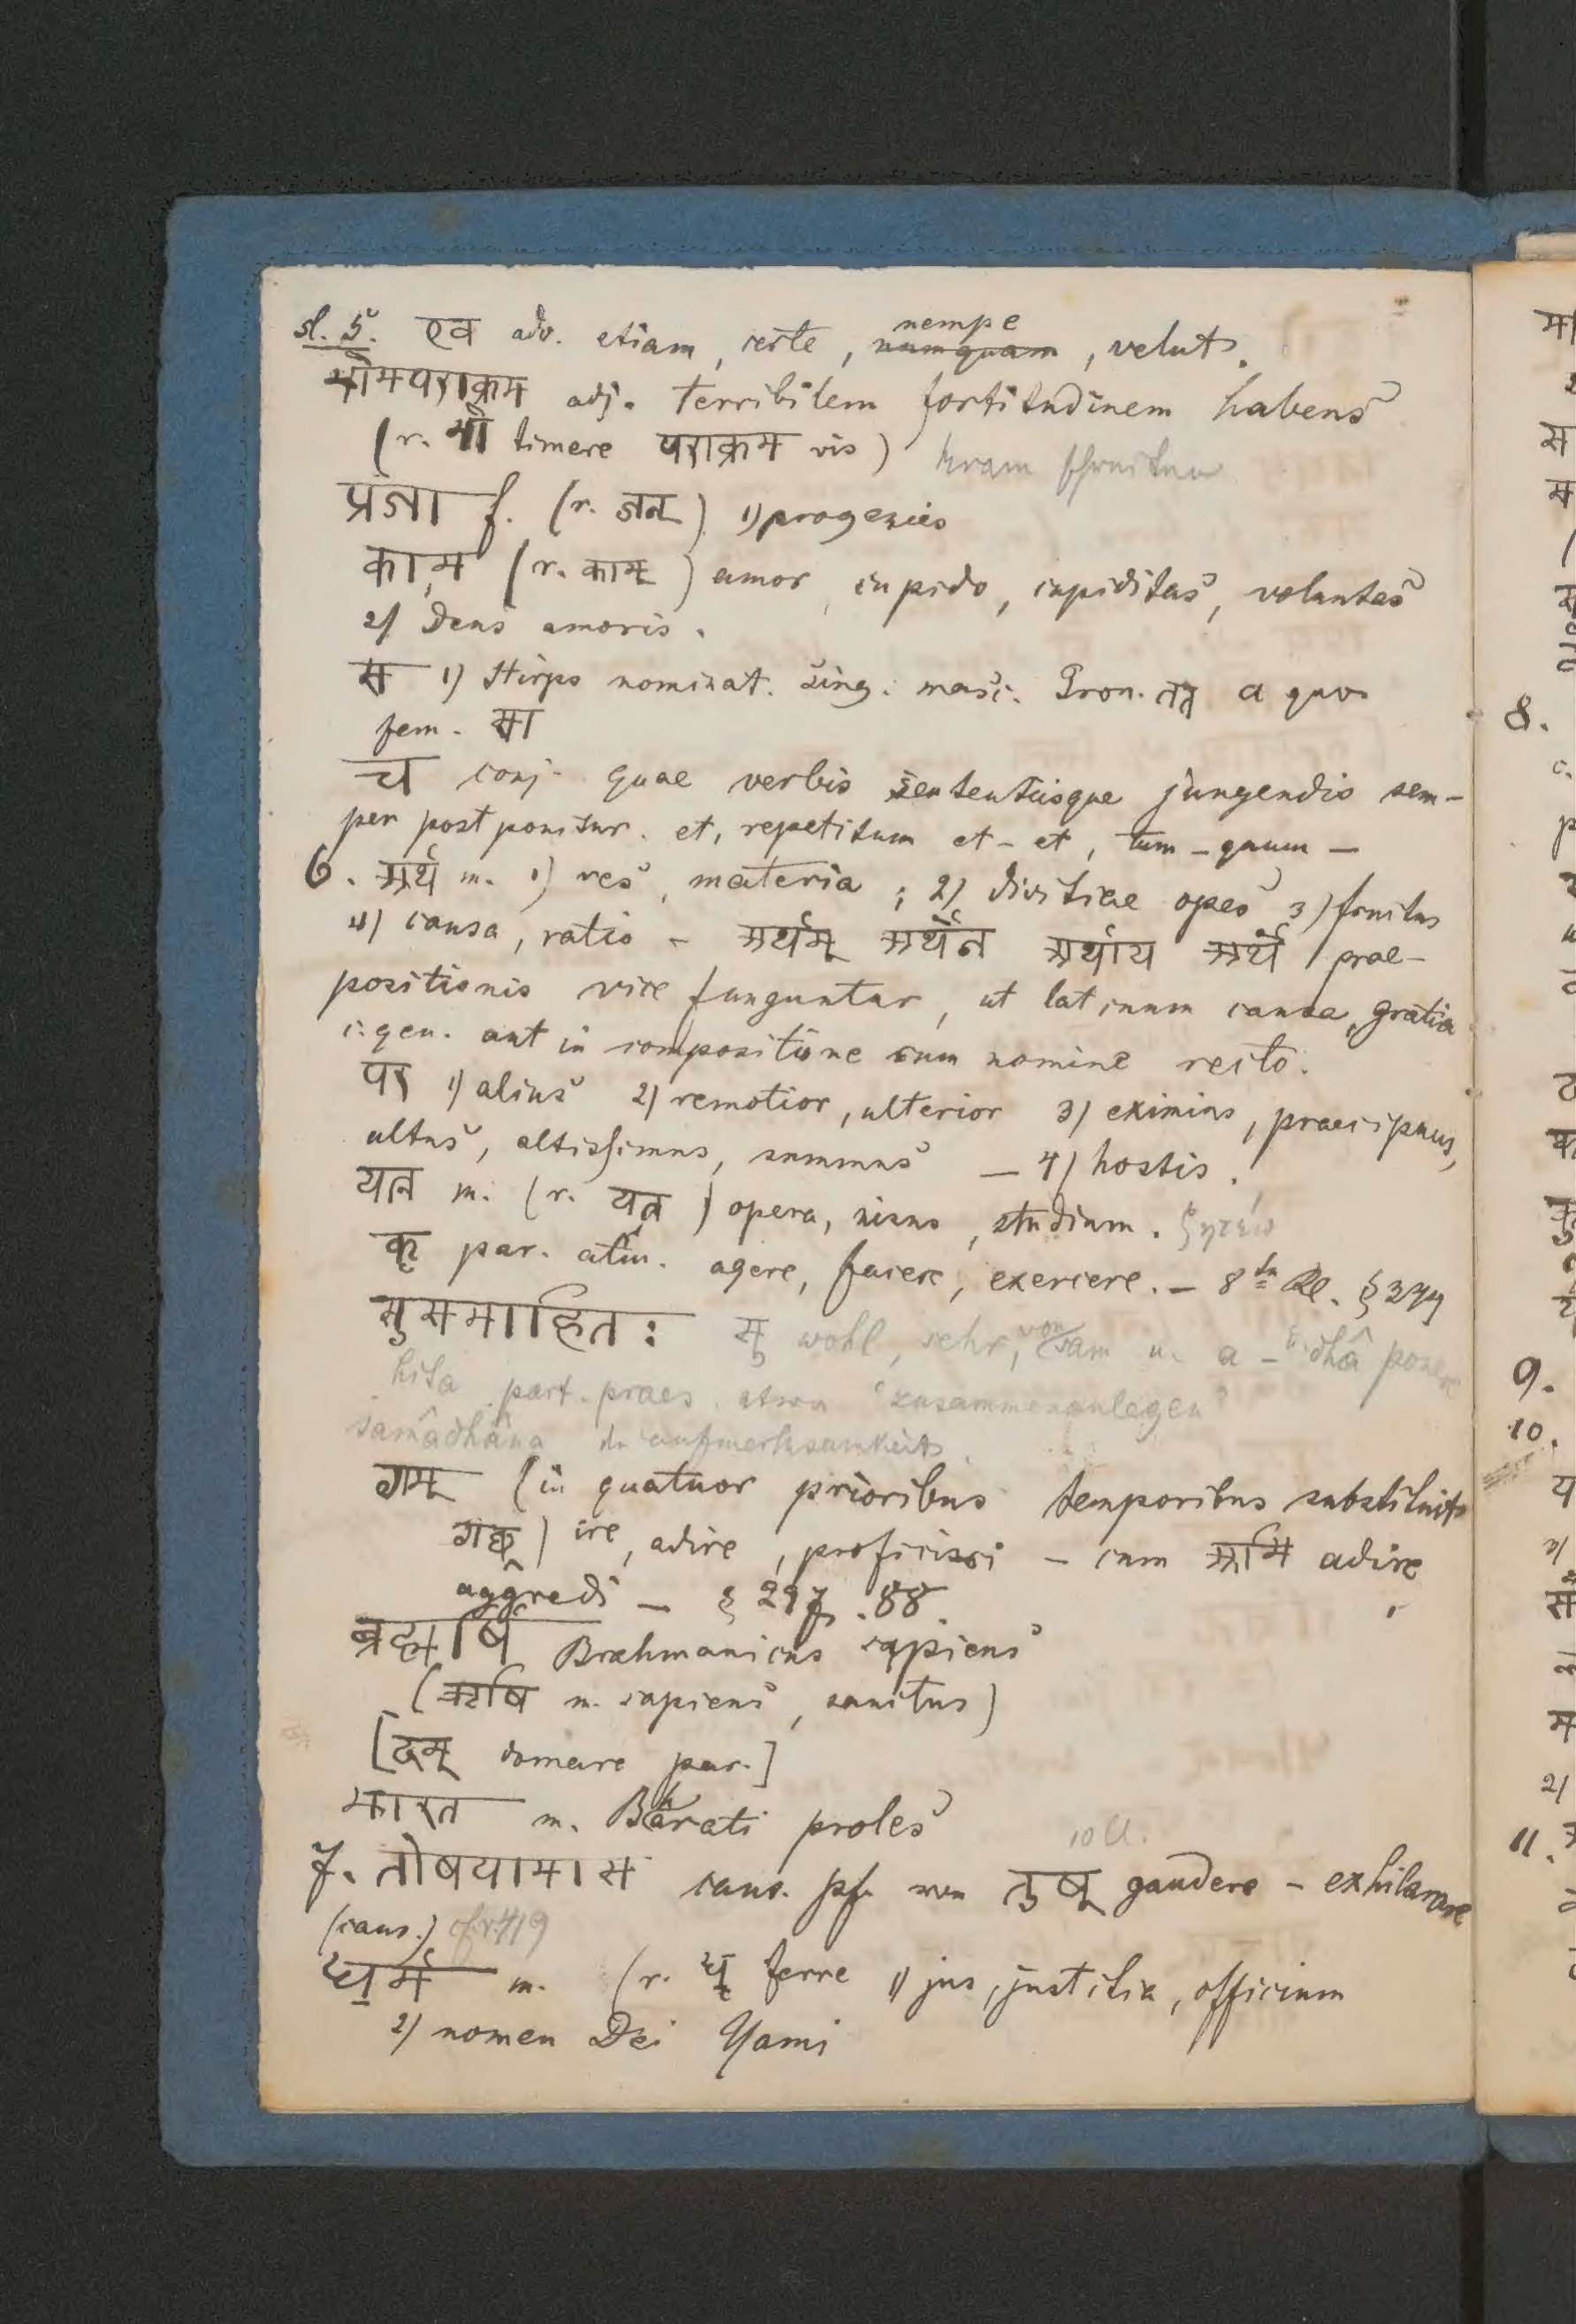 sl. 5. एव adv. etiam, certe, nempe numquam, velut.
भीमपराक्रम adj. terribilem fortitudinem habens
(r. भी timere पराक्रम vis) kram
प्रजा f. (r. जन्) 1) progenies
काम (r. काम्) amor, cupido, cupiditas, voluntas
2) Deus amoris.
स 1) Stirps nominat. sing. masc. Pron. तत् a quo
fem. सा
च conj. quae verbis sententiisque jungendis sem-
per postponitur. et, repetitum et - et, tum - quum -
6. अर्थ m. 1) res, materia ; 2) divitiae opes 3) fructus
4) causa, ratio - अर्थम् अर्थेन अर्थाय अर्थे prae-
positionis vice funguntur, ut latinum causa, gratia
c. gen. aut in compositione cum nomine recto.
पर 1) alius 2) remotior, ulterior 3) eximius, praecipuus,
altus, altissimus, summus - 4) hostis.
यत्न m. (r. यत्) opera, nisus, studium. ζητέω
कृ par. atm. agere, facere, exercere. - 8ta Cl. § 344
सुसमाहित: सु wohl, sehr, von sam u. a - dhâ ponere
hita part. praes. etwa "zusammenanlegen"
samâdhâna die aufmerksamkeit
गम् (in quatuor prioribus temporibus substituit
गछ्) ire, adire, proficisci - cum अभि adire
aggredi - § 297. 88.
ब्रह्मर्षि Brahmanicus sapiens
(ऋषि m. sapiens, sanctus)
[दम् domare par.]
भारत m. Bhârati proles
7. तोषयामास caus. pf. von तुष् 10 Cl. gaudere - exhilarare
(caus.) cfr. 419
धर्म m. (r. धृ ferre 1) jus, justitia, officium
2) nomen Dei Yami
8.
9.
10.
11.